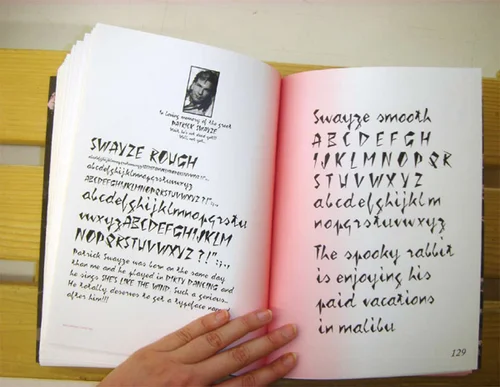 to loving memory of the great
PATRICK SWAYZE
Well, he's not dead yet!!!
Well, not yet...
SWAYZE ROUGH
ABCDEFGHIJKLMNOPQRSTUVWXYZ?!":;.,
abcdefghijklmnopqrstu
vwxyzABCDEFGHIJKLM
NOPQRSTUVWXYZ?!":;.,
Patrick Swayze was born on the same day
than me and he played in DIRTY DANCING and
he sings SHE'S LIKE THE WIND. Such a genious...
He totally deserves to get a typeface named
after him!!!
Swayze smooth
ABCDEFGH
IJKLMNOPQR
STUVWXYZ
abcdefghijklm
nopqrstuvwxyz
The spooky rabbit
is enjoying his
paid vacations
in malibu
129